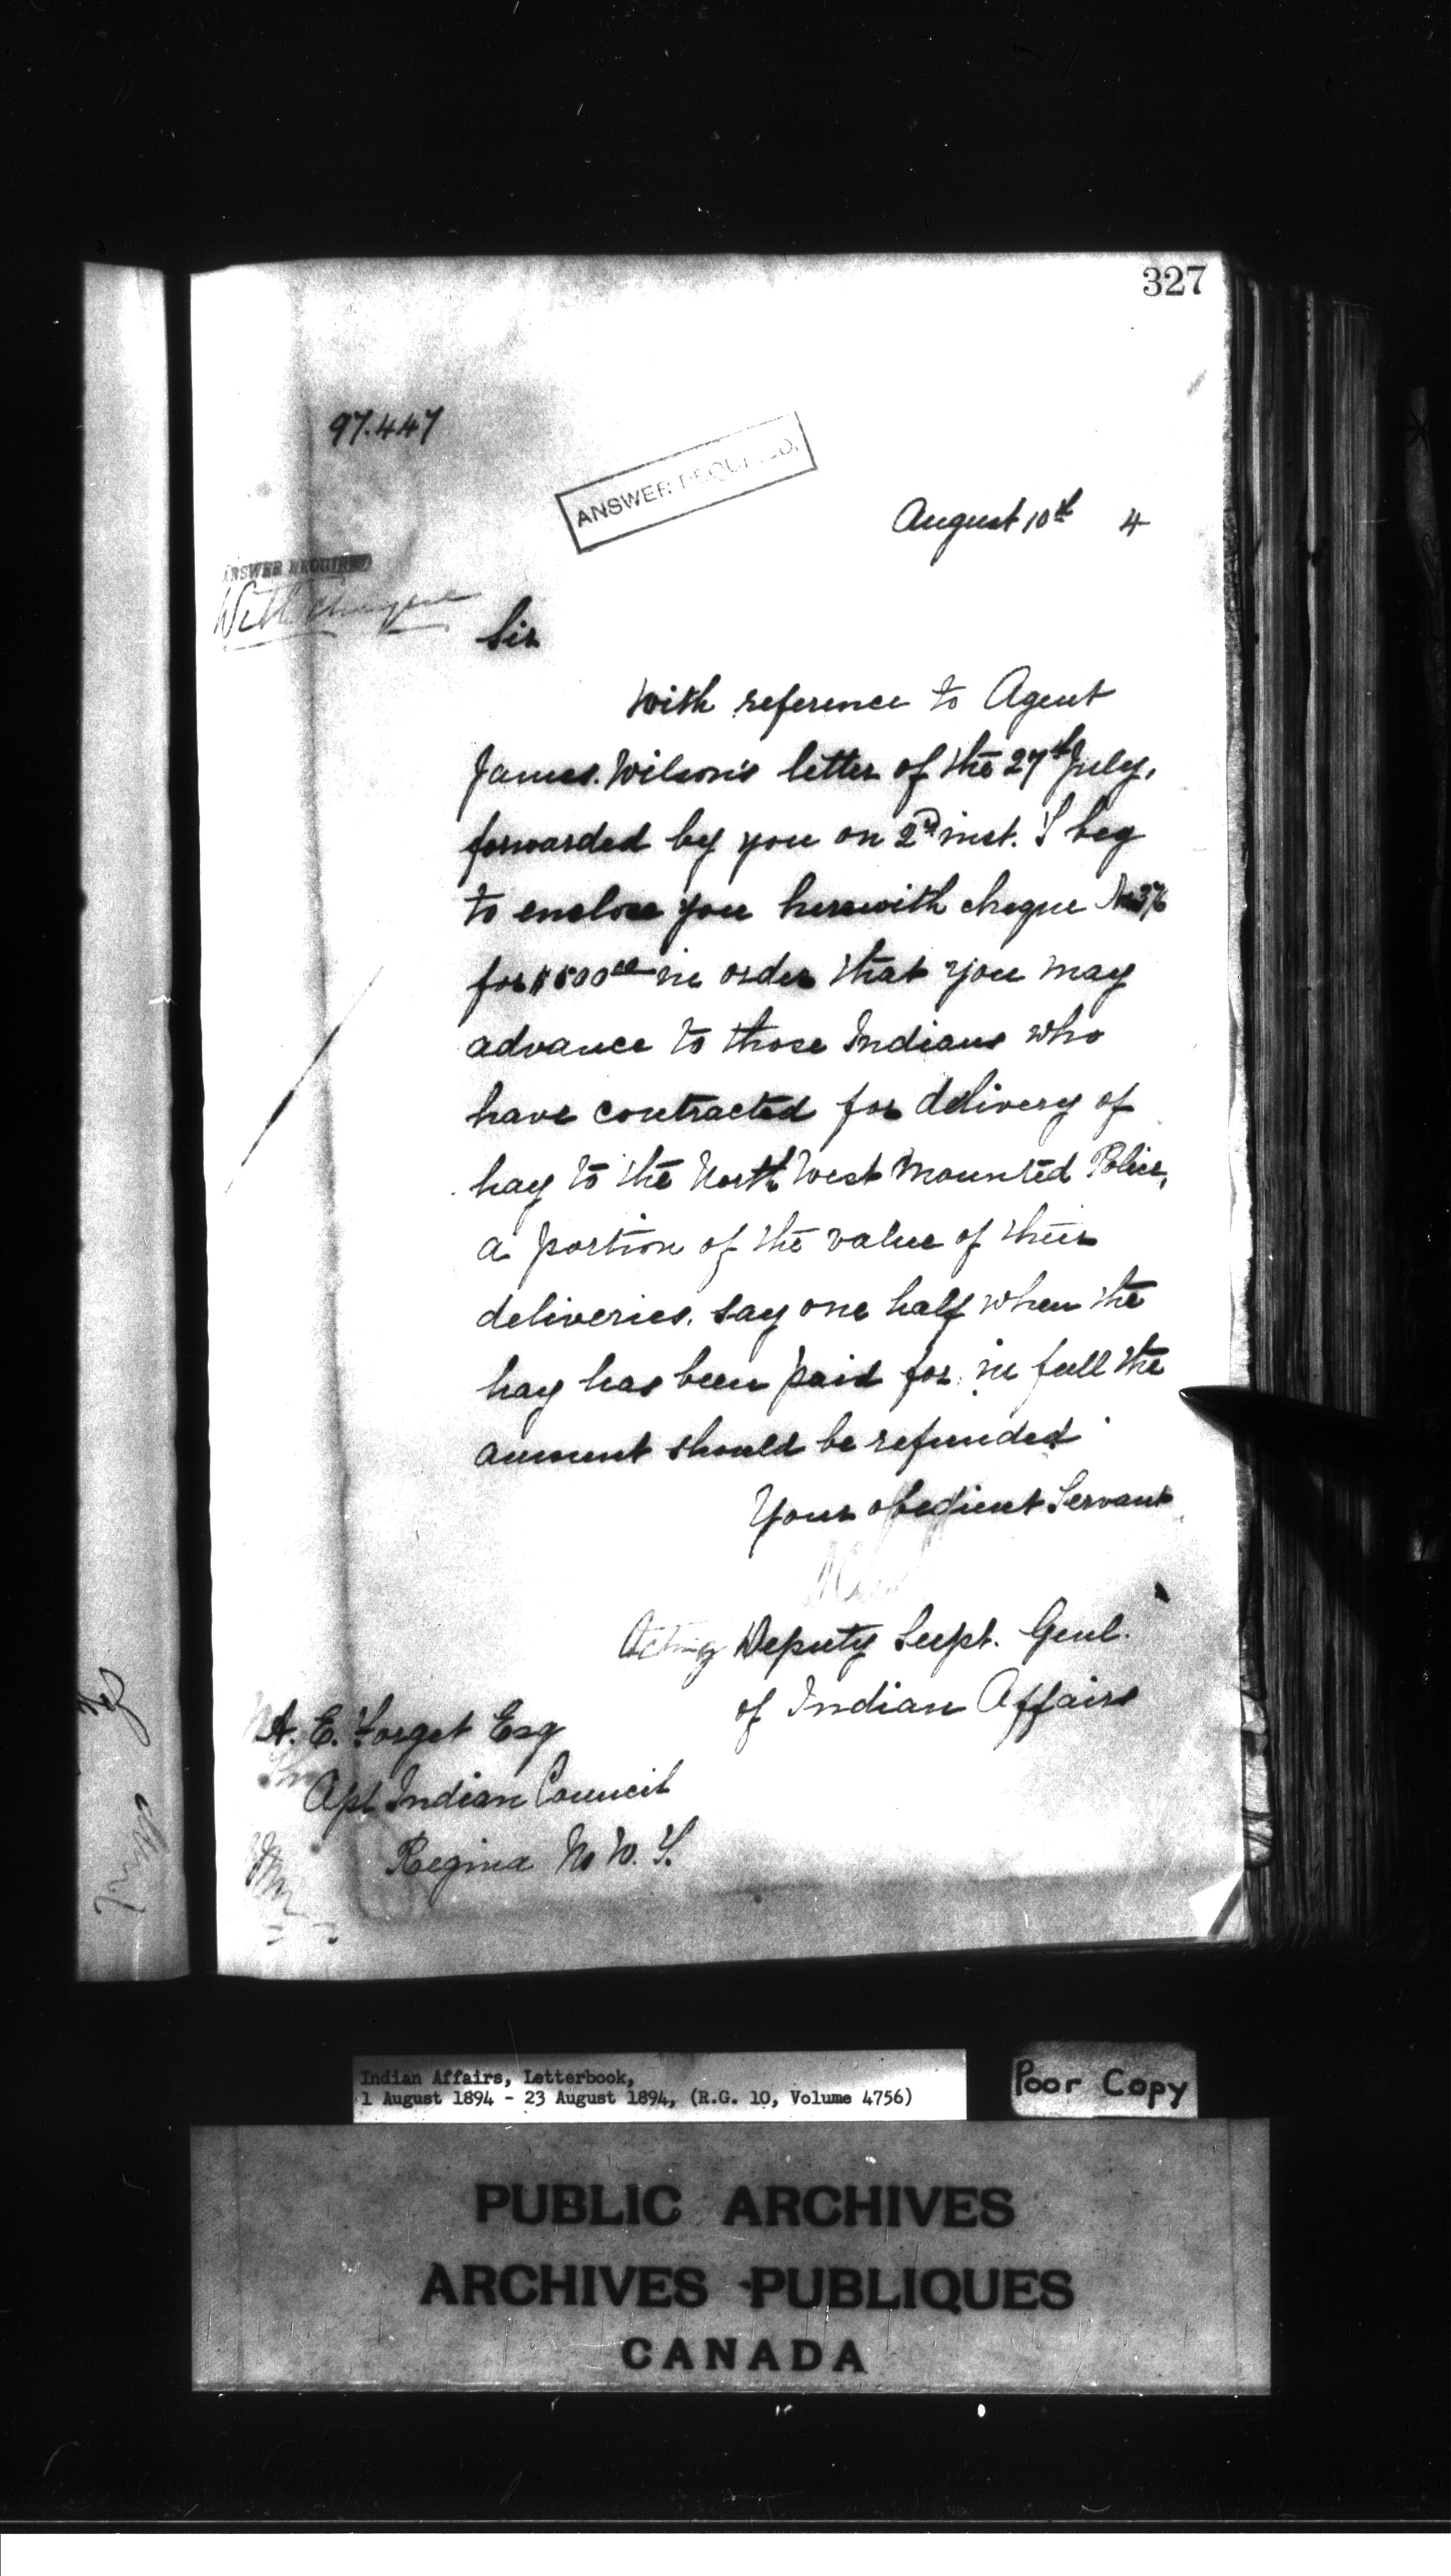 327
97.447
ANSWER REQUIRED.
August 10th 4
ANSWER REQUIRED
With cheque
Sir
With reference to Agent
James. Wilson's letter of the 27th July,
forwarded by you on 2d inst. I beg
to enclose you herewith cheque No 376
for $500 00 in order that you may
advance to those Indians who
have contracted for delivery of
hay to the North West Mounted Police,
a portion of the value of their
deliveries. say one half when the
hay has been paid for in full the
amount should be refunded
Your obedient Servant
Acting Deputy Supt. Genl.
of Indian Affairs
A. E. Forget Esq
Indian Council
Regina N. W. T.
Indian Affairs, Letterbook,
1 August 1894 - 23 August 1894, (R.G. 10, Volume 4756)
Poor Copy
PUBLIC ARCHIVES
ARCHIVES PUBLIQUES
CANADA